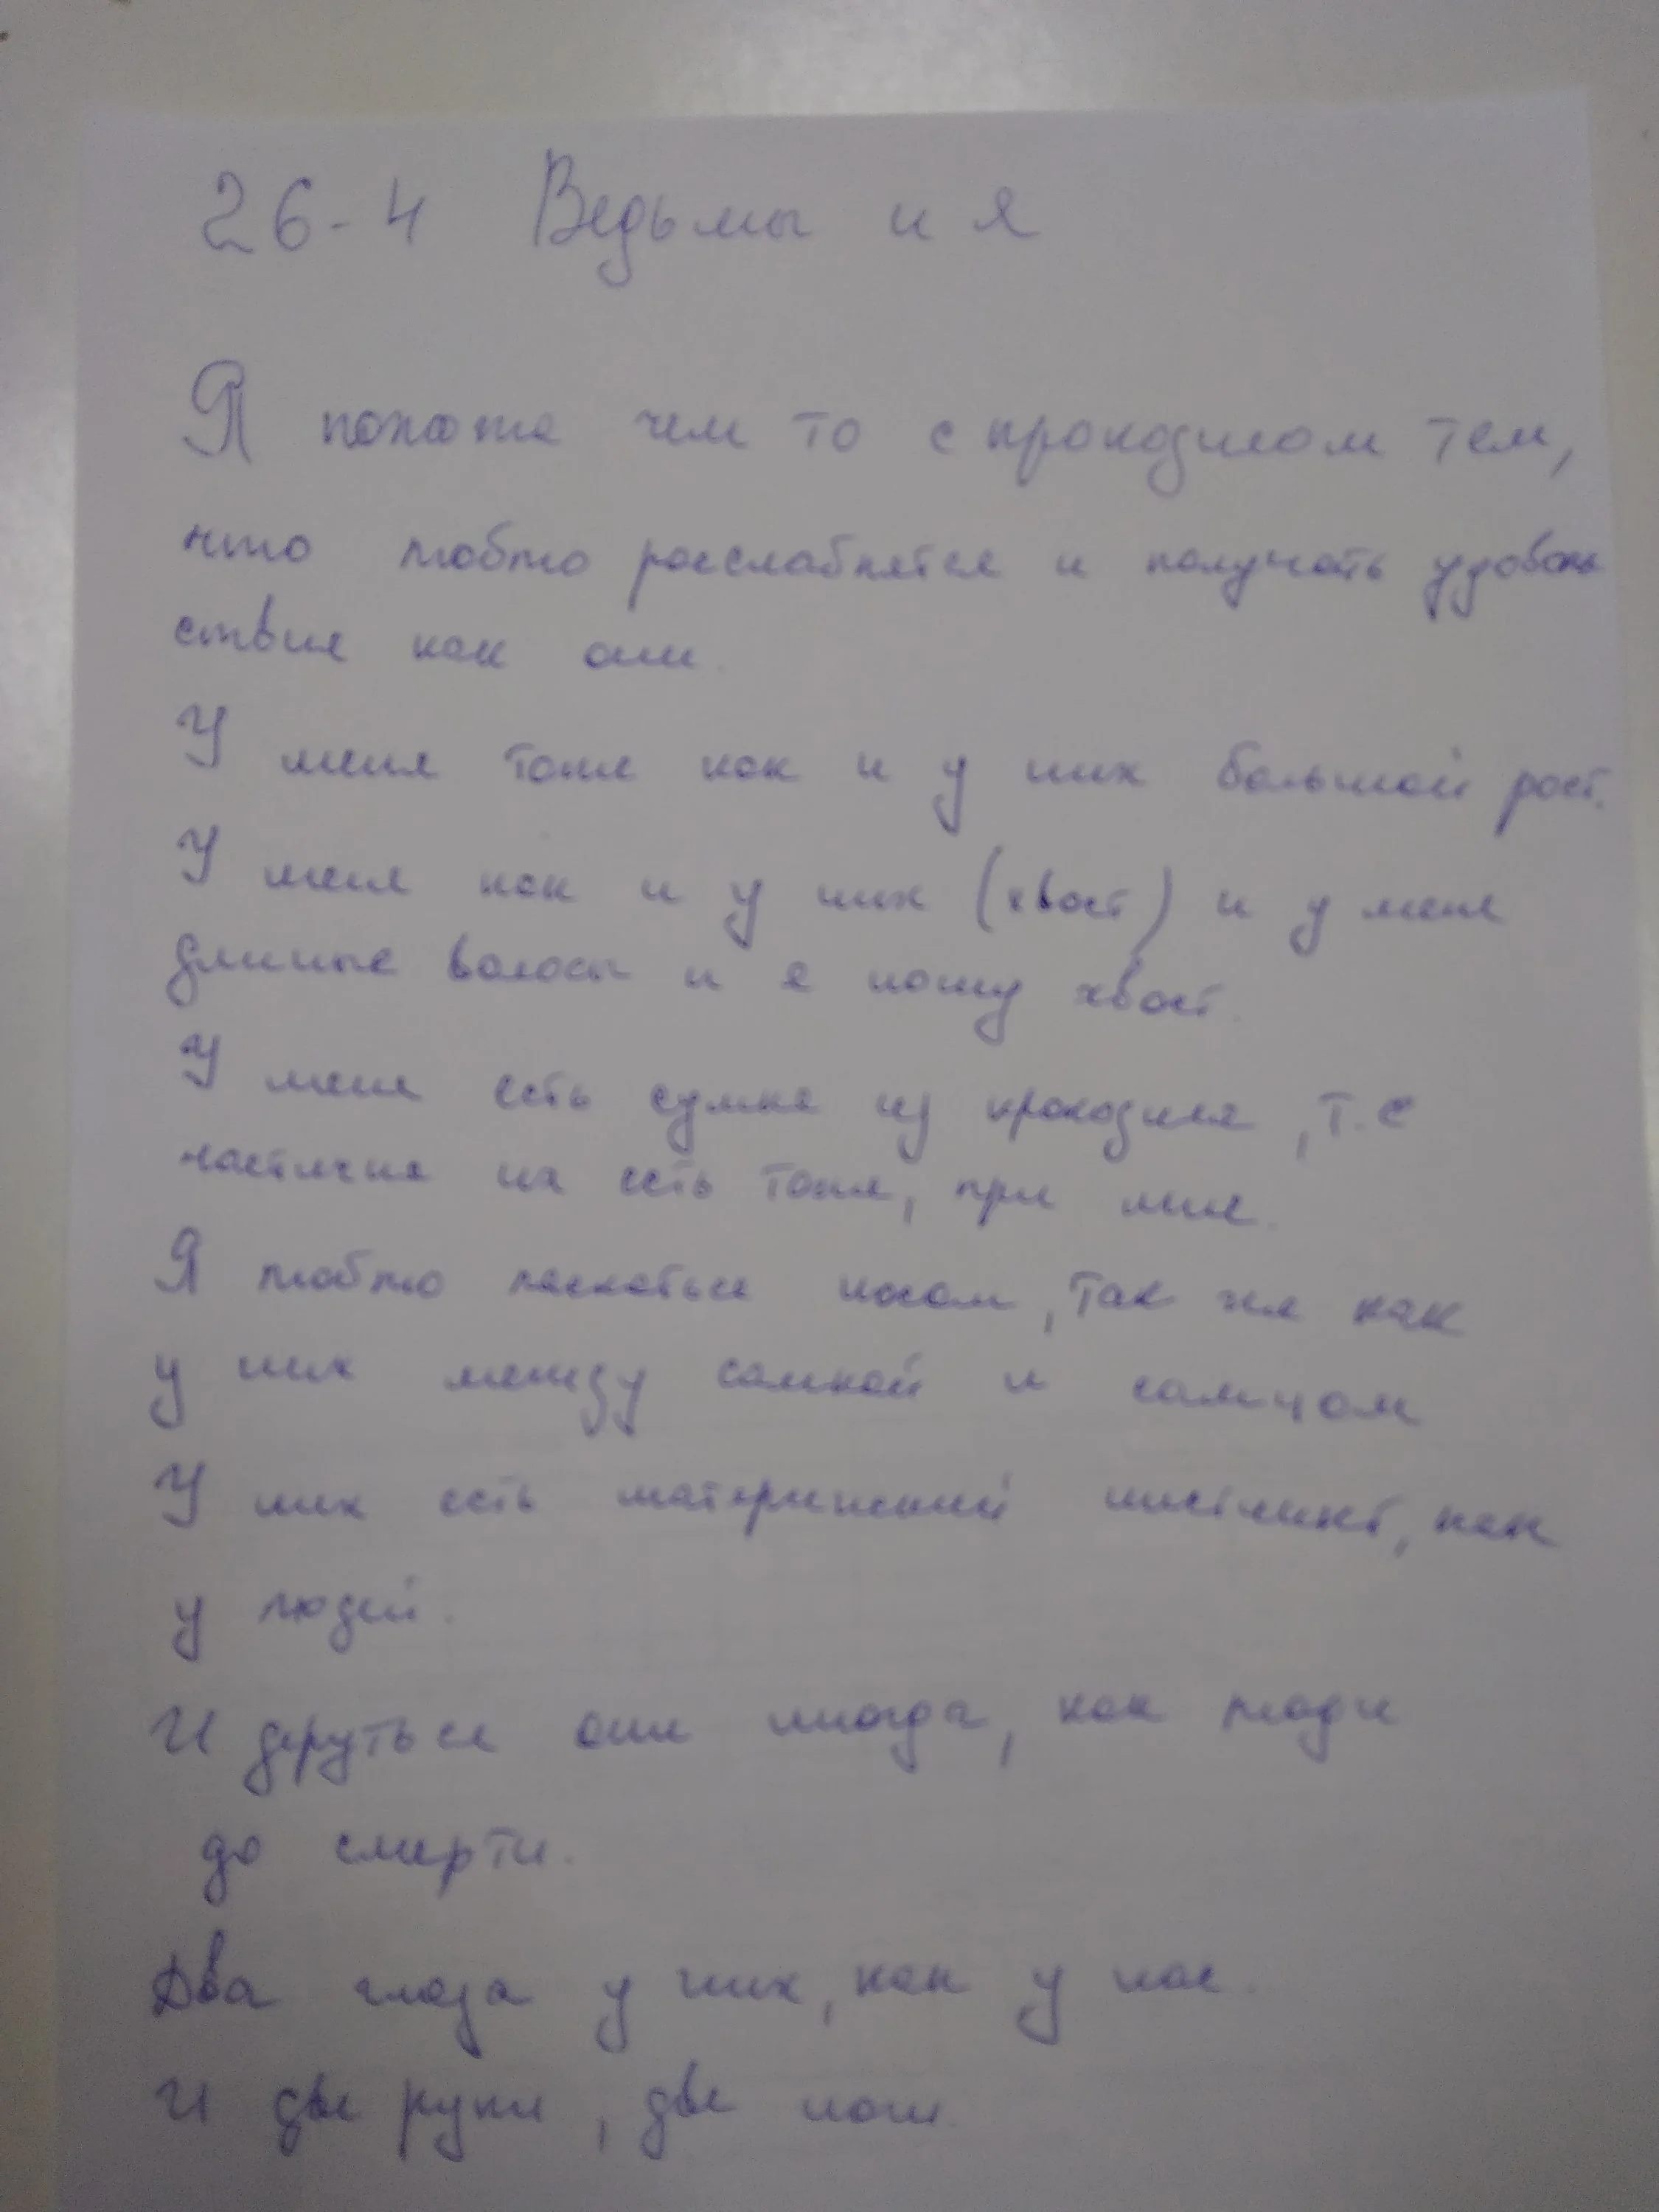 26-4 Ведьмы и я
Я похожа чем то с крокодилом тем,
что люблю расслаблятся и получать удоволь
ствия как они.
У меня тоже как и у них большой рост.
У меня как и у них (хвост) и у меня
длиные волосы и я ношу хвост.
У меня есть сумка из крокодила, т.е
частичка их есть тоже, при мне.
Я люблю ласкаться носом, так же как
у них между самкой и самцом
У них есть материнский инстинкт, как
у людей.
И деруться они иногда, как люди
до смерти.
Два глаза у них, как у нас.
И две руки, две ноги.